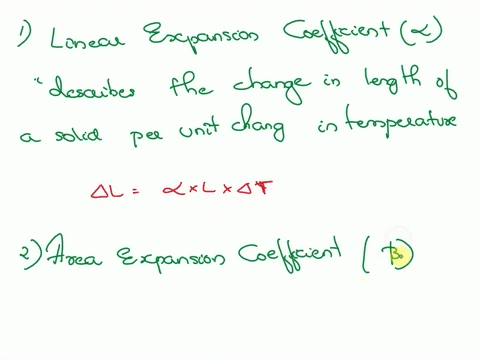 1) Linear Expansion Coefficient (α)
"describes the change in length of
a solid per unit chang in temperature
ΔL = α × L × ΔT
2) Area Expansion Coefficient (β)